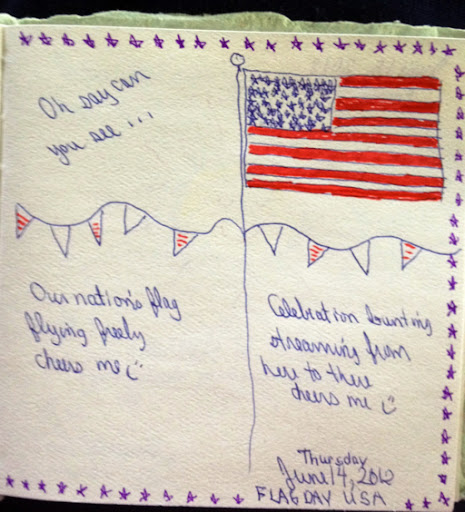 Oh say can
you see...
Our nation's flag
flying freely
cheers me
Celebration bunting
streaming from
here to there
cheers me
Thursday
June 14, 2012
FLAG DAY USA